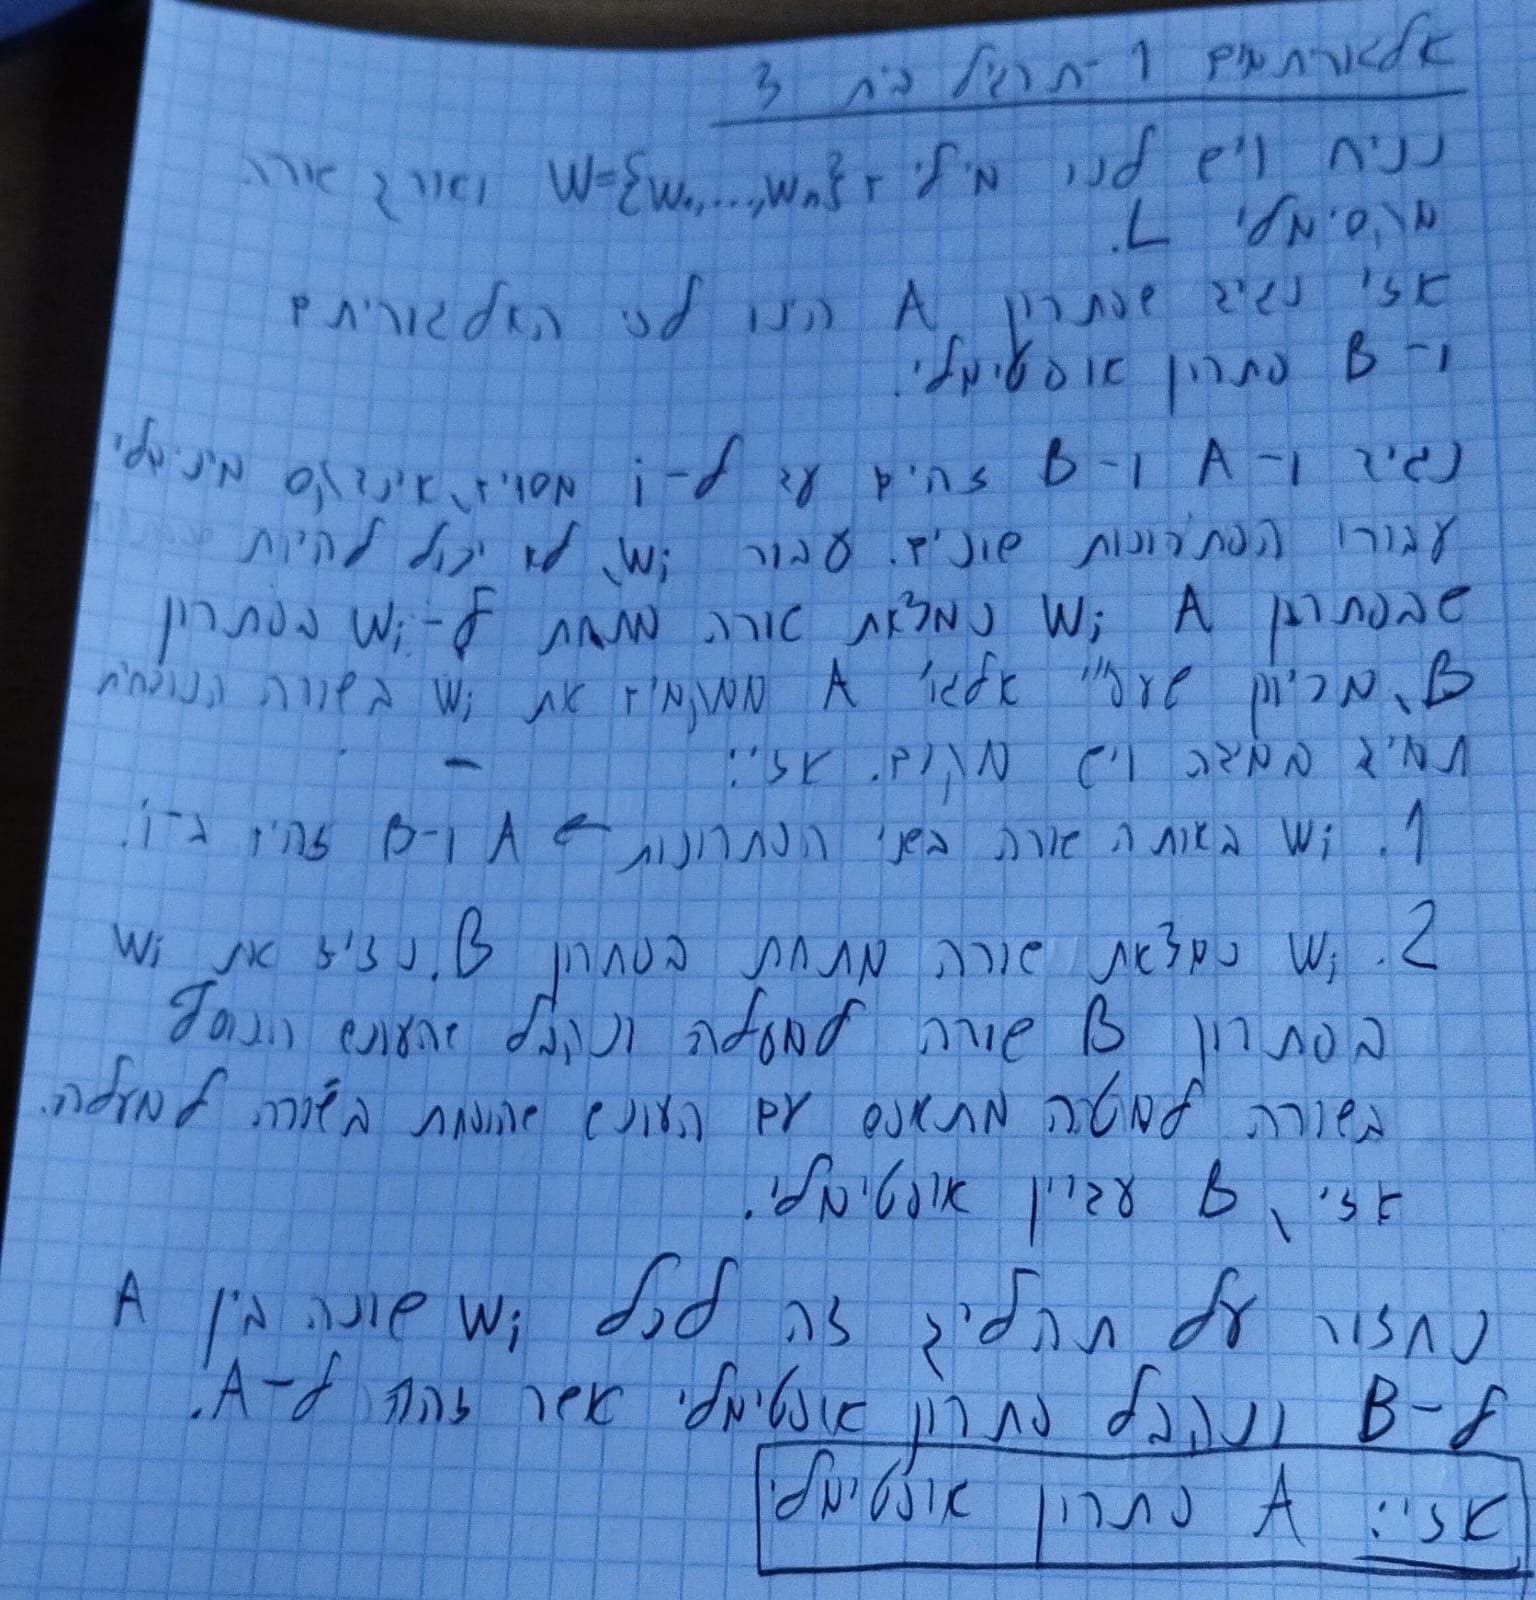 אלגוריתמים 1 - תרגיל בית 3
נניח ויש לנו מ.ל. + W={W₁,...,Wₙ} ואורך שורה
מקסימלי L.
אזי, נגיד שפתרון A הינו לפי האלגוריתם
ו- B פתרון אופטימלי.
נגיד ו- A ו- B זהים עד ל-i מסוים, אינדקס מינימלי
עבורו הפתרונות שונים. עבור Wᵢ, לא יכול להיות
שבפתרון A Wᵢ נמצאת שורה מתחת ל-Wᵢ בפתרון
B, מכיוון שעפ"י אלגו' A ממקמים את Wᵢ בשורה הנוכחית
תמיד במידה ויש מקום. אזי:
1. Wᵢ באותה שורה בשני הפתרונות ← A ו-B זהים ב-i.
2. Wᵢ נמצאת שורה מתחת בפתרון B. נזיז את Wᵢ
בפתרון B שורה למעלה ונקבל שהעונש הנוסף
בשורה למטה מתאפס עם העונש שהופחת בשורה למעלה.
אזי, B עדיין אופטימלי.
נחזור על תהליך זה לכל Wᵢ שונה בין A
ל-B ונקבל פתרון אופטימלי אשר זהה ל-A.
אזי: A פתרון אופטימלי